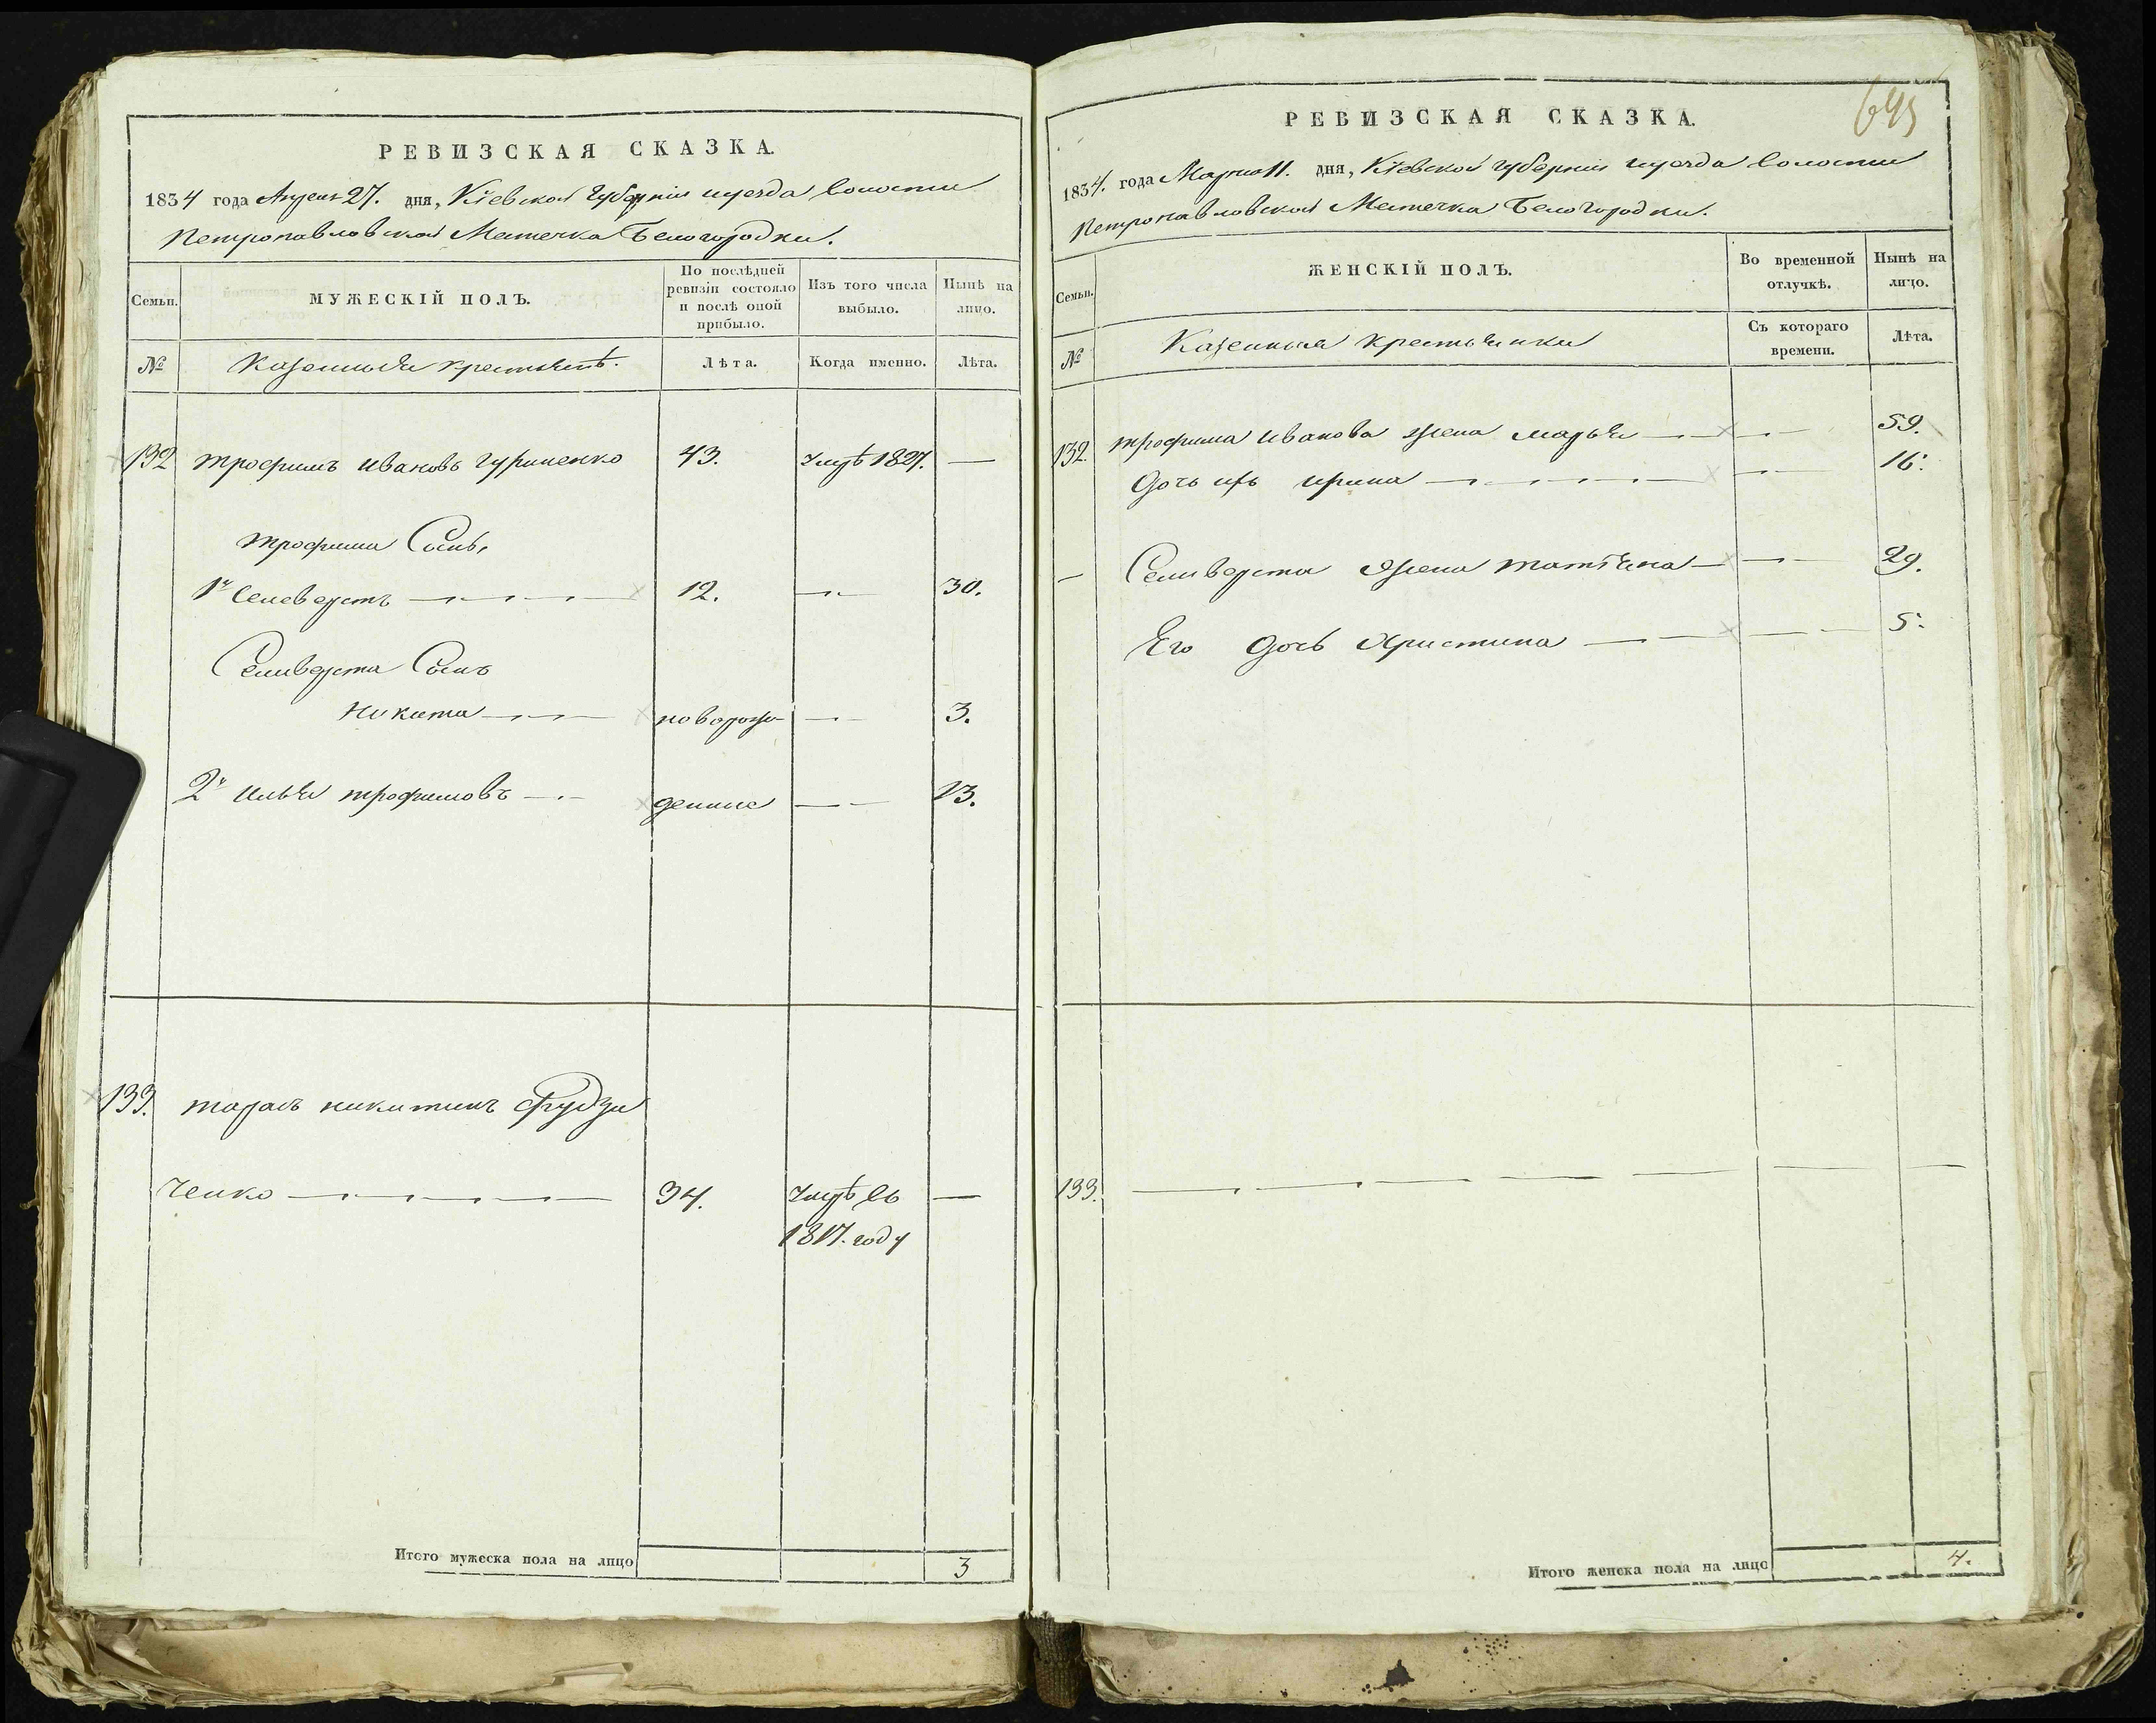 РЕВИЗСКАЯ СКАЗКА.
1834 года Апреля 27. дня, Кіевской Губерніи и уезда Волости
Петропавловской Местечка Белогородки.
Семьи.
МУЖЕСКІЙ ПОЛЪ.
По послѣдней ревизіи состояло и послѣ оной прибыло.
Изъ того числа выбыло.
Нынѣ на лицо.
№
Казенныя крестьянѣ.
Лѣта.
Когда именно.
Лѣта.
132 трофимъ Ивановъ Гуриненко 43. Умрѣ 1827. —
трофима Сынъ,
1й Селеверстъ 12. — 30.
Селиверста Сынъ
Никита новорож- — 3.
2й Илья трофимовъ денные — 13.
133. тарасъ никитинъ
ченко 34. Умрѣ въ —
1817. году
Итого мужеска пола на лицо 3
645
РЕВИЗСКАЯ СКАЗКА.
1834. года Марта 11. дня, Кіевской Губерніи и уезда Волости
Петропавловской Местечка Белогородки.
Семьи.
ЖЕНСКІЙ ПОЛЪ.
Во временной отлучкѣ.
Нынѣ на лицо.
№
Казенныя крестьянки
Съ котораго времени.
Лѣта.
132. трофима Иванова жена марья — 59.
Дочь ихъ ирина — 16.
Селиверста жена татіяна — 29.
Его дочь Христина — 5.
133. —
Итого женска пола на лицо 4.